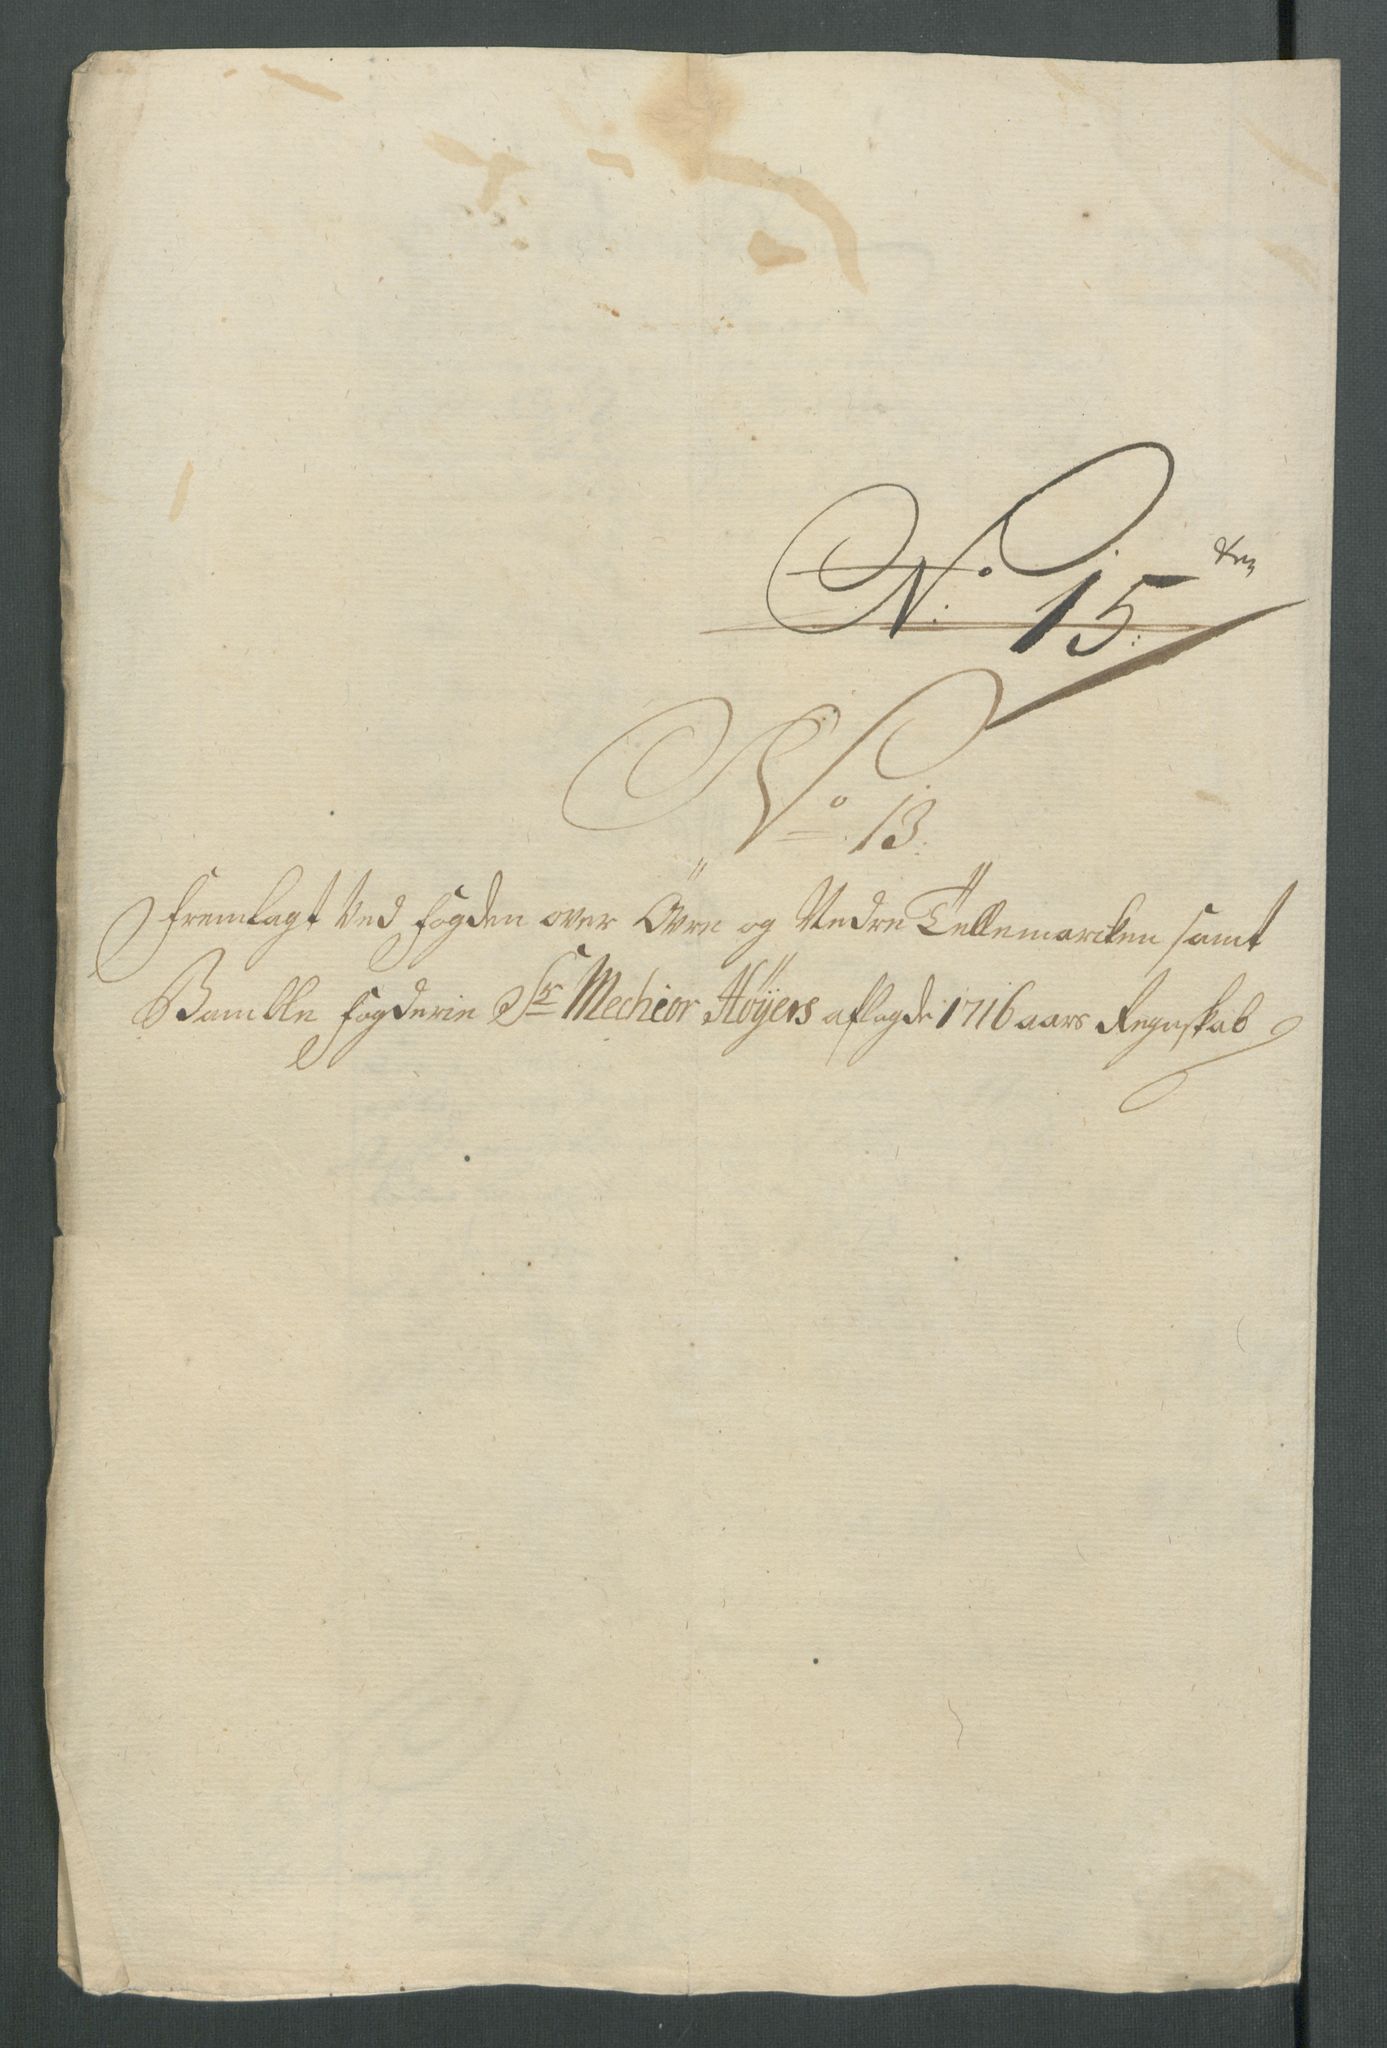 No. 15.
No. 13.
Fremlagt Ved Fogden over Övre og Nedre Tellemarcken samt
Bamble Fogderie Sr Mechior Höÿers aflagde 1716 aars Regnskab